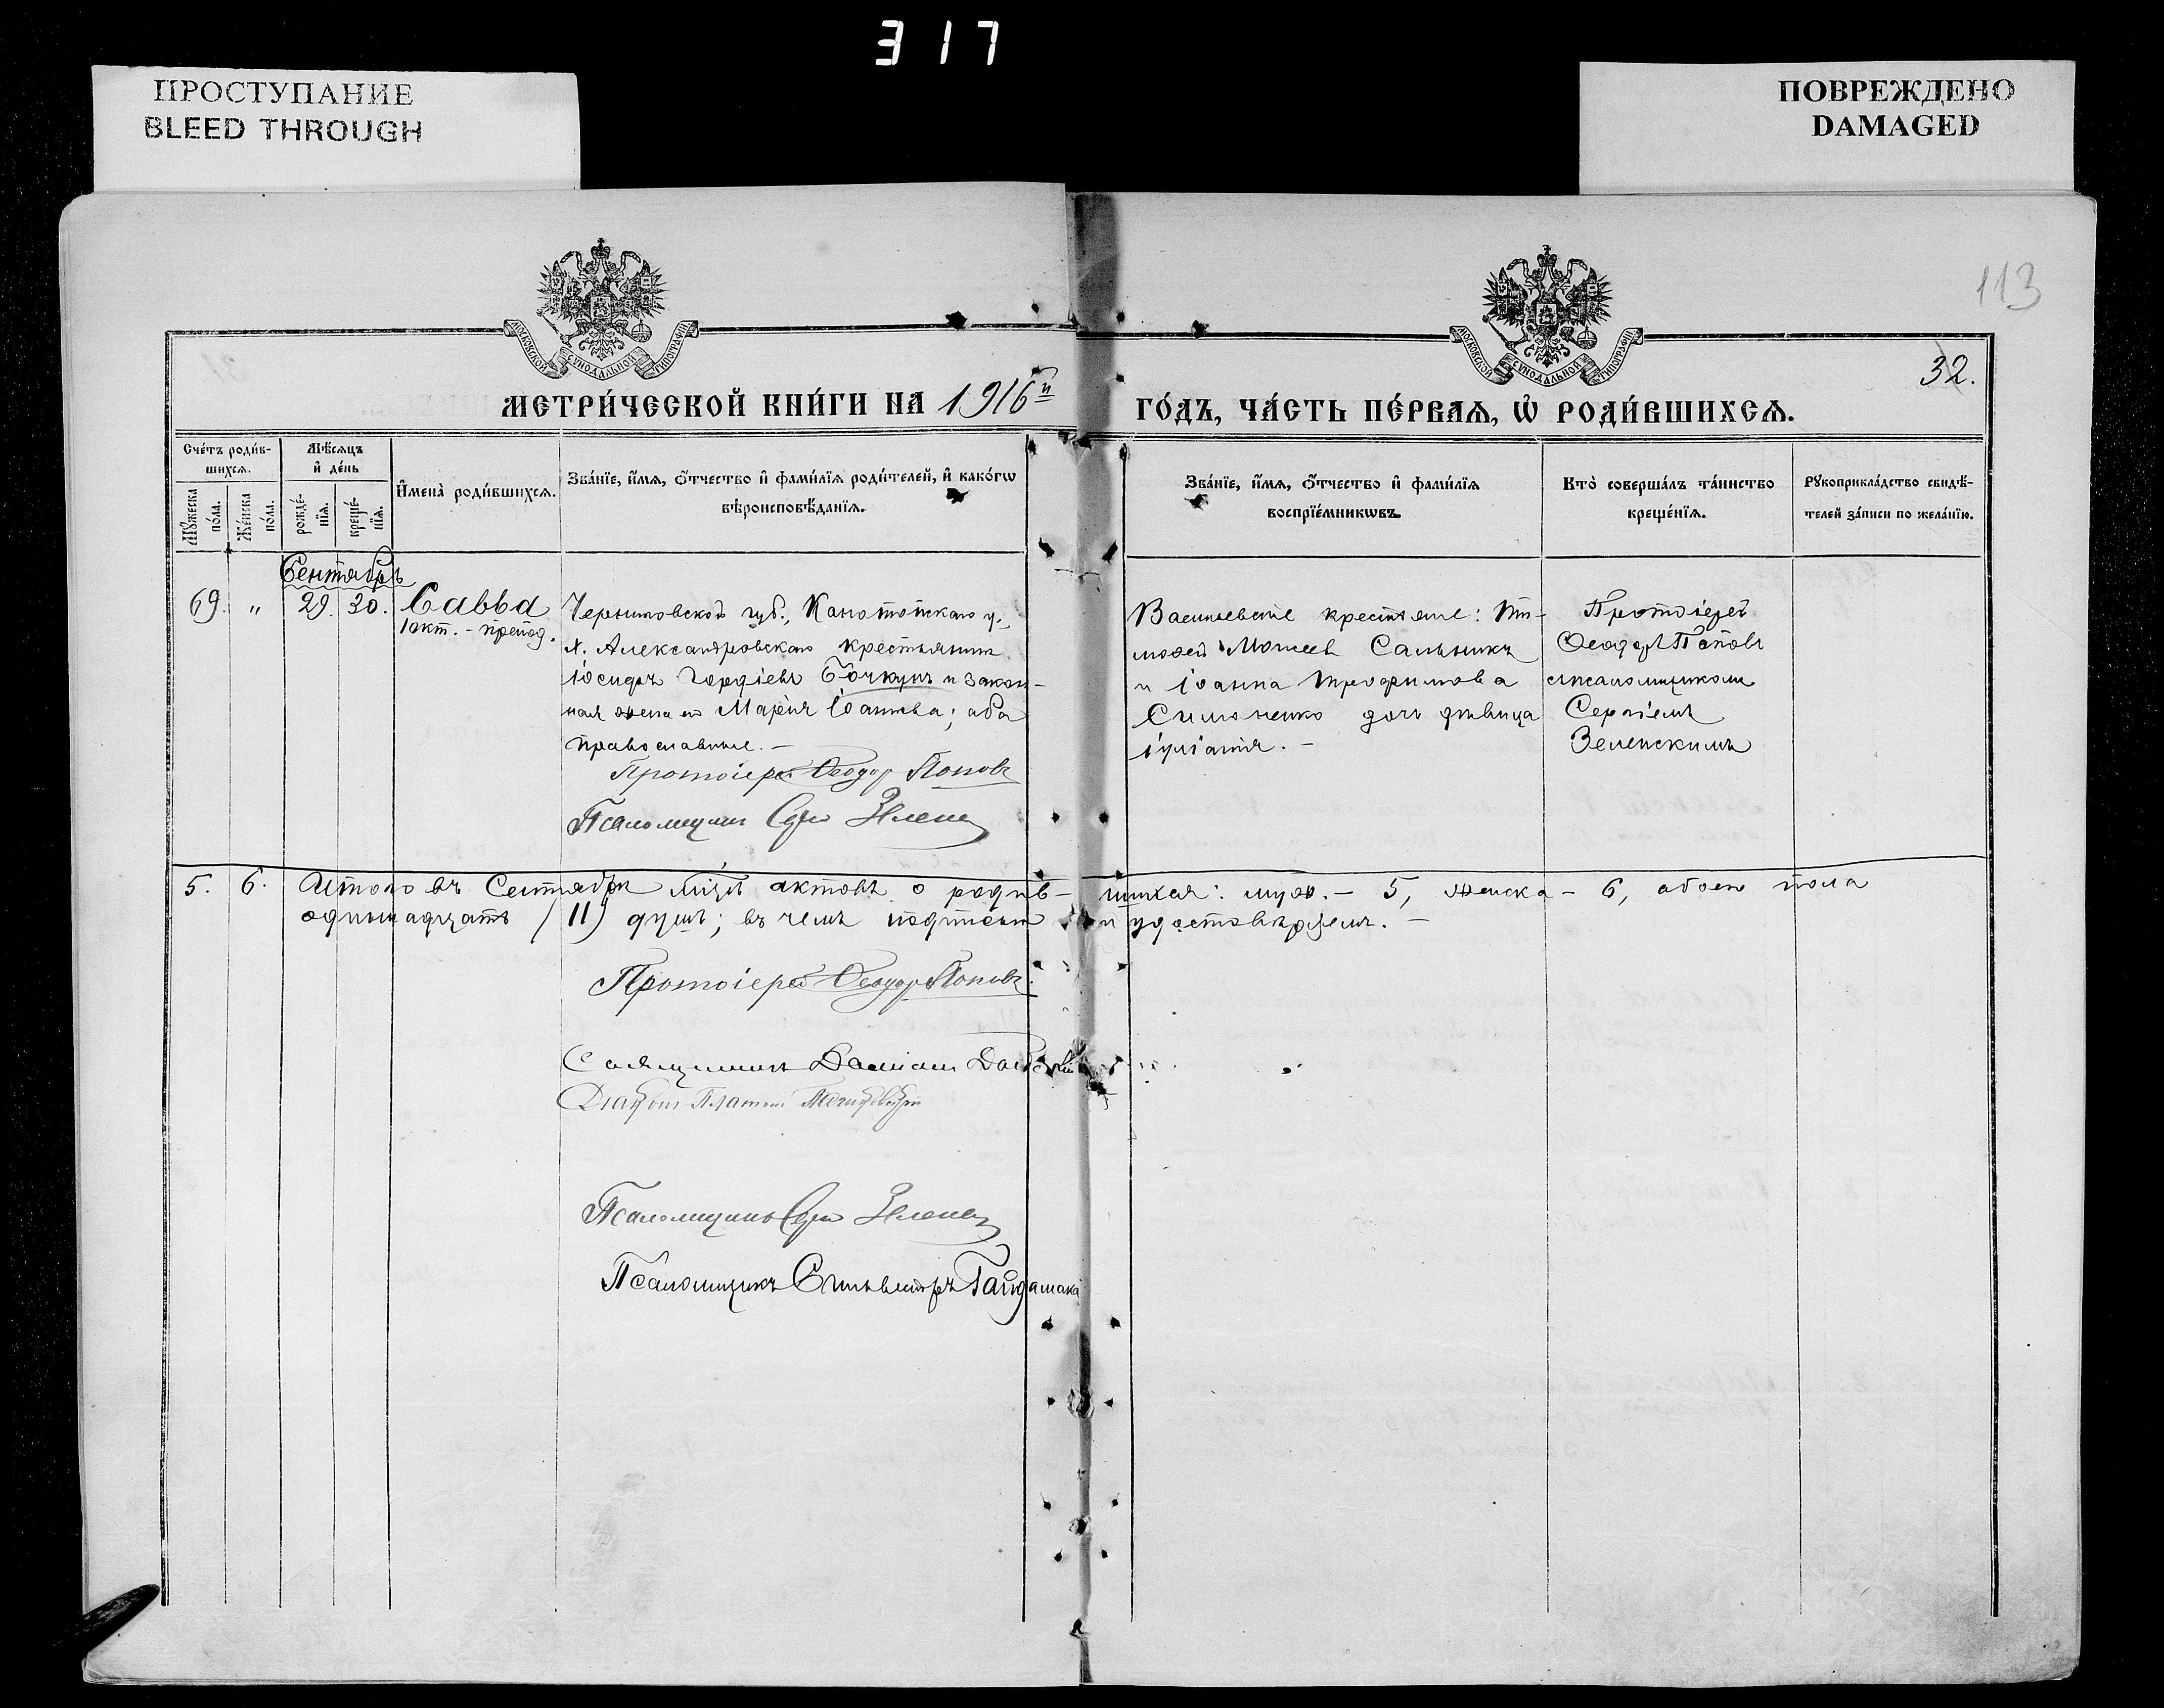 317
ПРОСТУПАНИЕ
BLEED THROUGH
ПОВРЕЖДЕНО
DAMAGED
113
МОСКОВСКОЙ СУНОДАЛЬНОЙ ТИПОГРАФІИ
МОСКОВСКОЙ СУНОДАЛЬНОЙ ТИПОГРАФІИ
32.
МЕТРИ́ЧЕСКОЙ КНИ́ГИ НА 1916й ГО́ДЪ, ЧА́СТЬ ПЕ́РВАѦ, Ѡ҆ РОДИ́ВШИХСѦ.
Сче́тъ роди́в-
шихсѧ.
Мѣ́сѧцъ
и҆ де́нь
Мꙋ́жеска по́ла.
Же́нска по́ла.
рожде́-
нїѧ.
креще́-
нїѧ.
И҆мена̀ роди́вшихсѧ.
Зва́нїе, и҆́мѧ, ѻ҆́тчество и҆ фами́лїѧ роди́телей, и҆ како́гѡ
вѣроисповѣ́данїѧ.
Зва́нїе, и҆́мѧ, ѻ҆́тчество и҆ фами́лїѧ
воспрїе́мникѡвъ.
Кто̀ соверша́лъ та́инство
креще́нїѧ.
Рꙋкоприкла́дство свидѣ́-
телей за́писи по жела́нїю.
Сентябрь
69. " 29. 30. Савва
1 окт. - препод.
Черниговской губ., Конотопскаго у.,
х. Александровскаго крестьянинъ
Іосифъ Гордіевъ Бочкунъ и закон-
ная жена его Марія Іоаннова; оба
православные. —
Протоіерей Ѳеодор Поповъ
Псаломщикъ
Васильевскіе крестьяне: Ти-
моѳей Моисеев Сальникъ
и Іоанна Трофимова
Симоненко дочь дѣвица
Іуліанія. —
Протоіерей
Ѳеодоръ Поповъ
съ псаломщикомъ
Сергіемъ
Зеленскимъ
5. 6. Итого въ Сентябрѣ м-цѣ актовъ о родив- шихся: муж. — 5, женска — 6, обоего пола
одиннадцать (11) душъ; въ чемъ подписомъ и удостовѣряемъ. —
Протоіерей Ѳеодор Поповъ.
Священникъ Даміанъ
Діаконъ Платонъ
Псаломщикъ
Псаломщикъ Сильвестръ Гайдамака